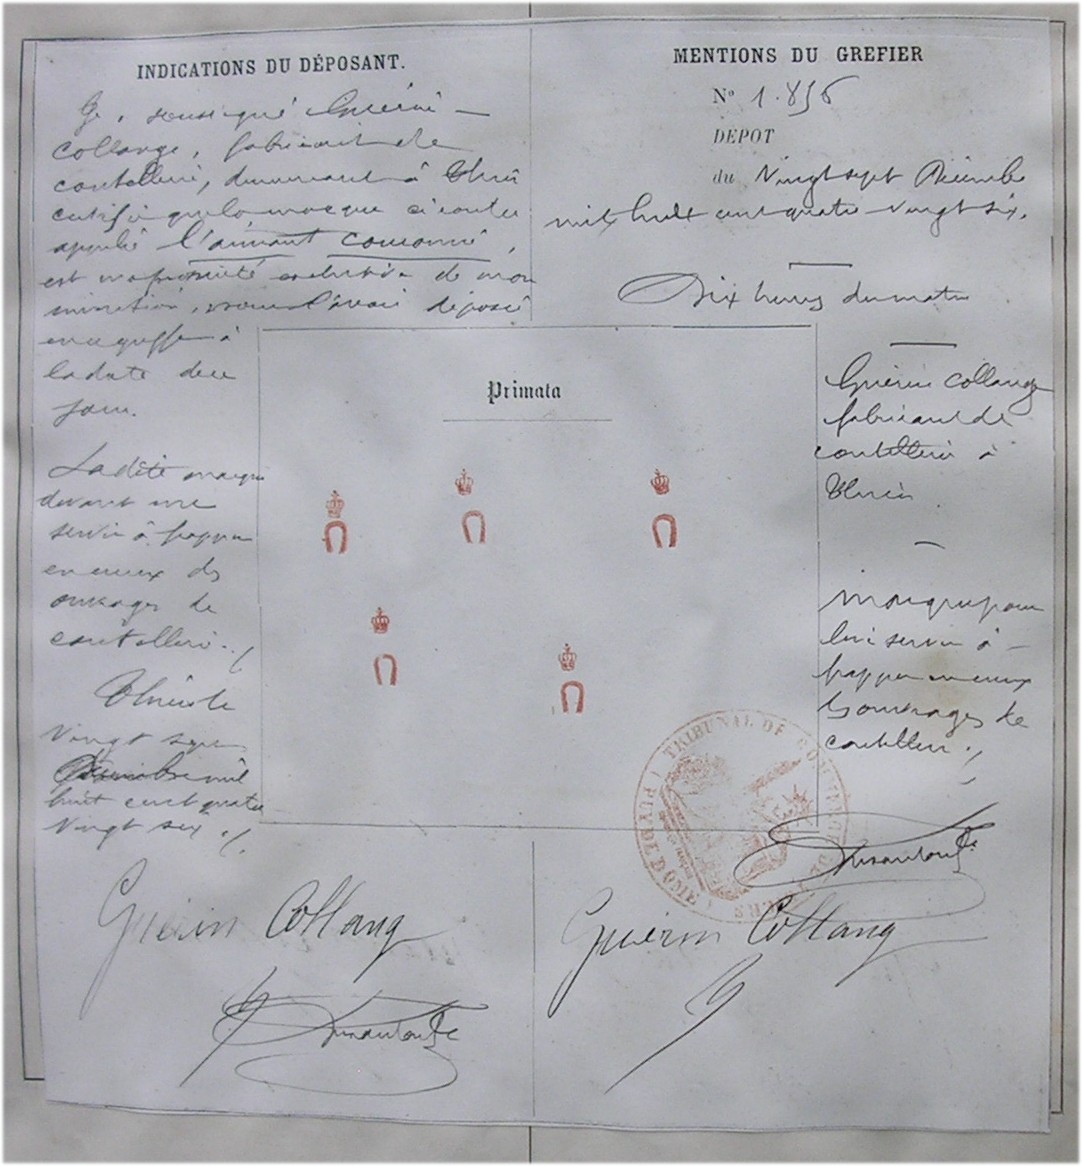 INDICATIONS DU DÉPOSANT.
Je, soussigné Guérin
Collange, fabricant de
coutellerie, demeurant à Thiers
certifie que la marque ci contre
appelée l'aimant couronné,
est ma propriété exclusive de mon
invention, l'avoir déposé
au greffe à
la date de ce
jour.
La dite marque
devant me
servir à frapper
en creux des
ouvrages de
coutellerie./.
Thiers le
Vingt sept
Décembre mil
huit cent quatre
Vingt six./.
Guérin Collang
MENTIONS DU GREFIER
No 1.856
DEPOT
du Vingt sept Décembre
mil huit cent quatre-vingt six.
Dix heures du matin
Primata
Guérin Collange
fabricant de
coutellerie à
Thiers
Marque pour
lui servir à
frapper en creux
des ouvrages de
coutellerie./.
TRIBUNAL DE COMMERCE DE THIERS
(PUY DE DOME)
Guérin Collang